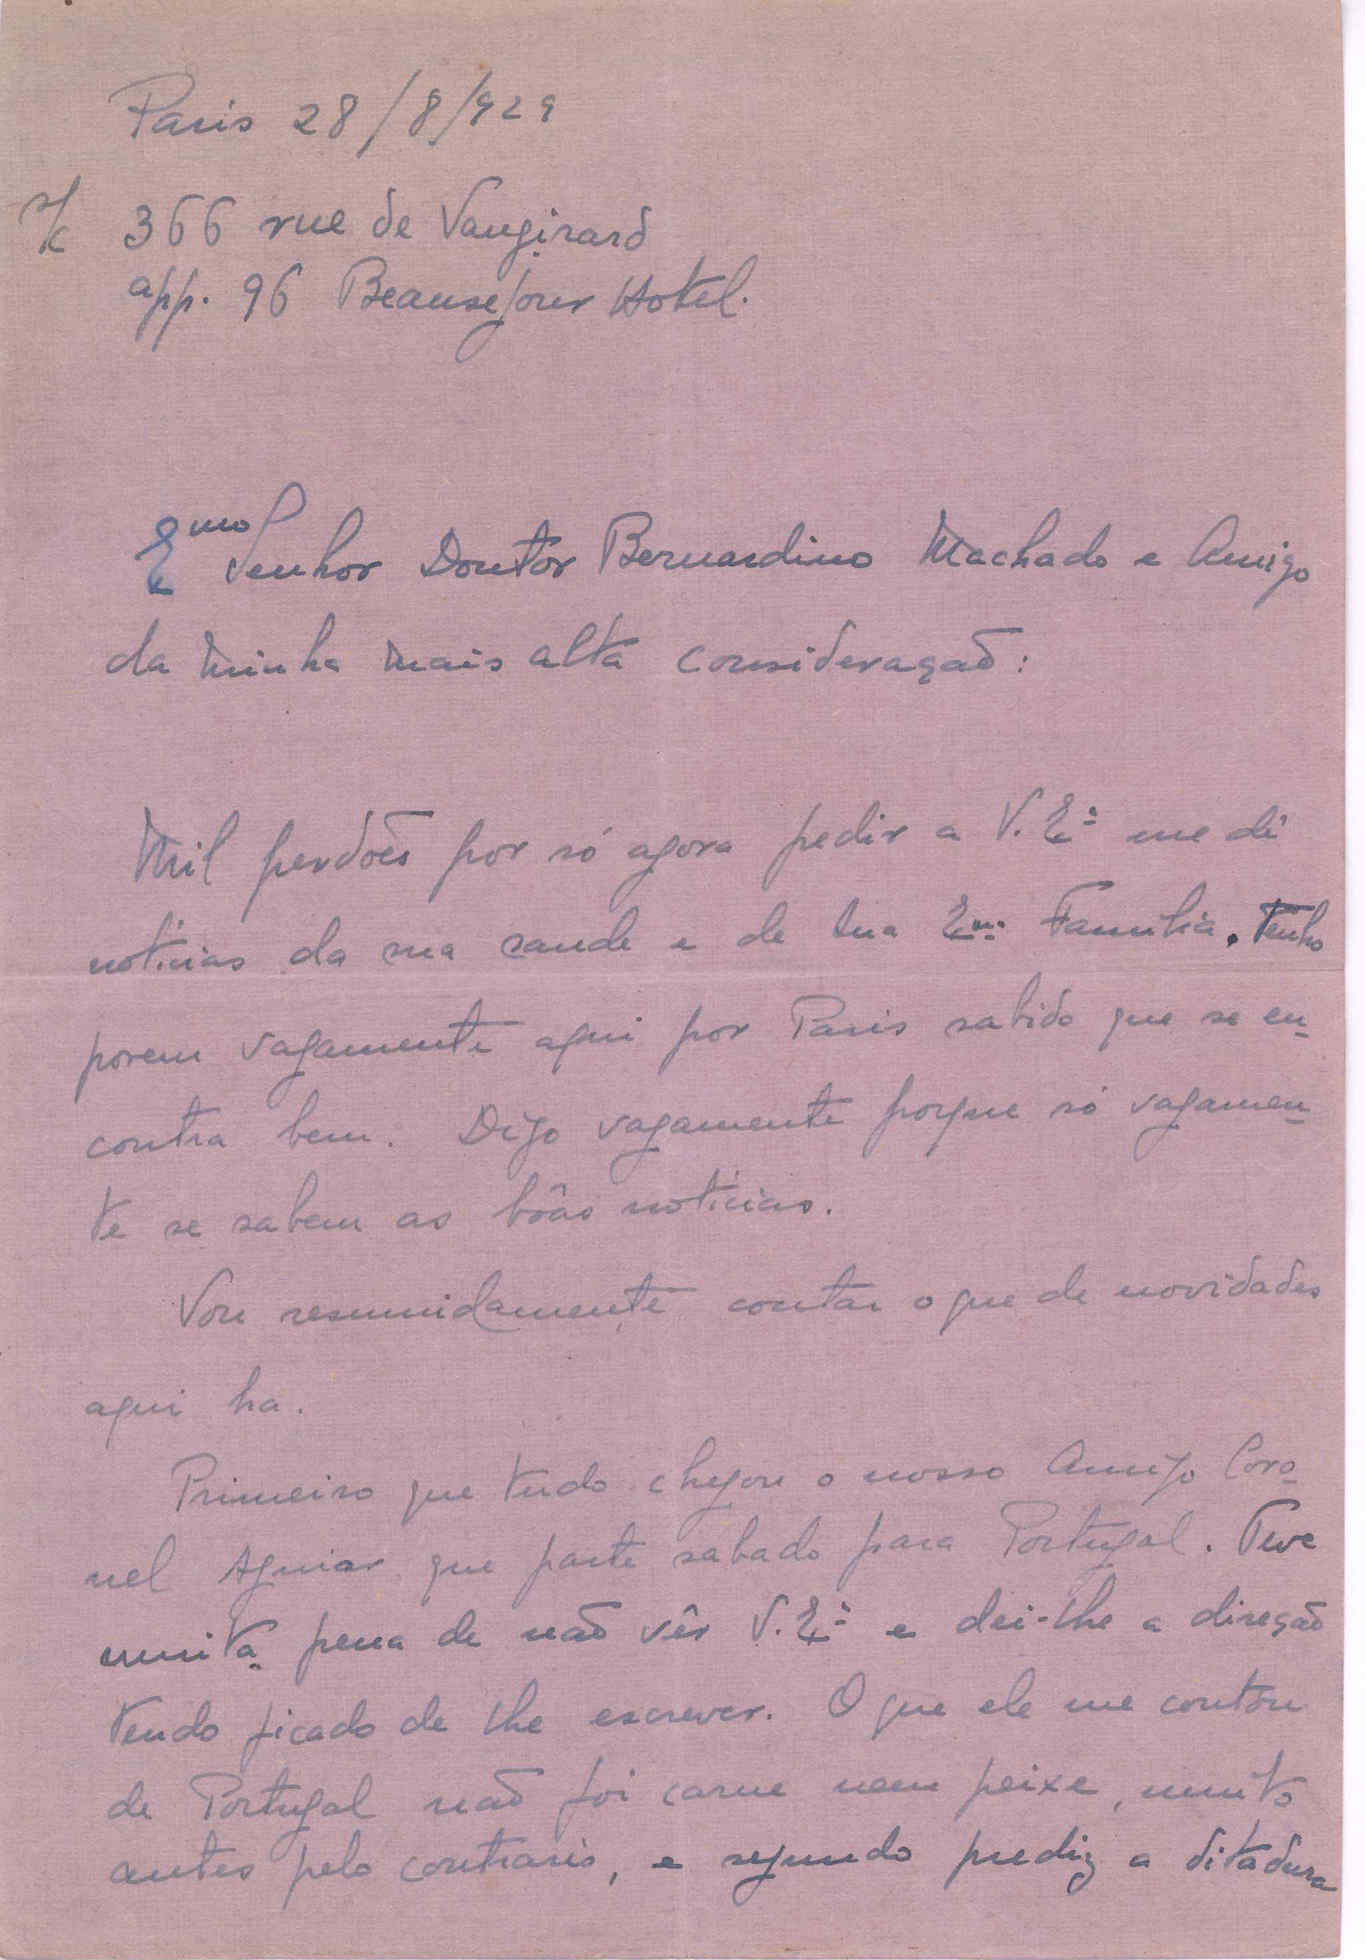 Paris 28/8/929
s/c 366 rue de Vaugirard
app. 96 Beausejour Hotel.
Emo Senhor Doutor Bernardino Machado e Amigo
da minha mais alta consideração:
Mil perdões por só agora pedir a V. Exª me dê
noticias da sua saude e de sua Exma Familia. Tenho
porem vagamente aqui por Paris sabido que se en-
contra bem. Digo vagamente porque só vagamen-
te se sabem as bôas noticias.
Vou resumidamente contar o que de novidades
aqui ha.
Primeiro que tudo chegou o nosso Amigo Coro-
nel Aguiar que parte sabado para Portugal. Teve
muita pena de não vêr V. Exª e dei-lhe a direção
tendo ficado de lhe escrever. O que ele me contou
de Portugal não foi carne nem peixe, muito
antes pelo contrario, e segundo prediz a ditadura